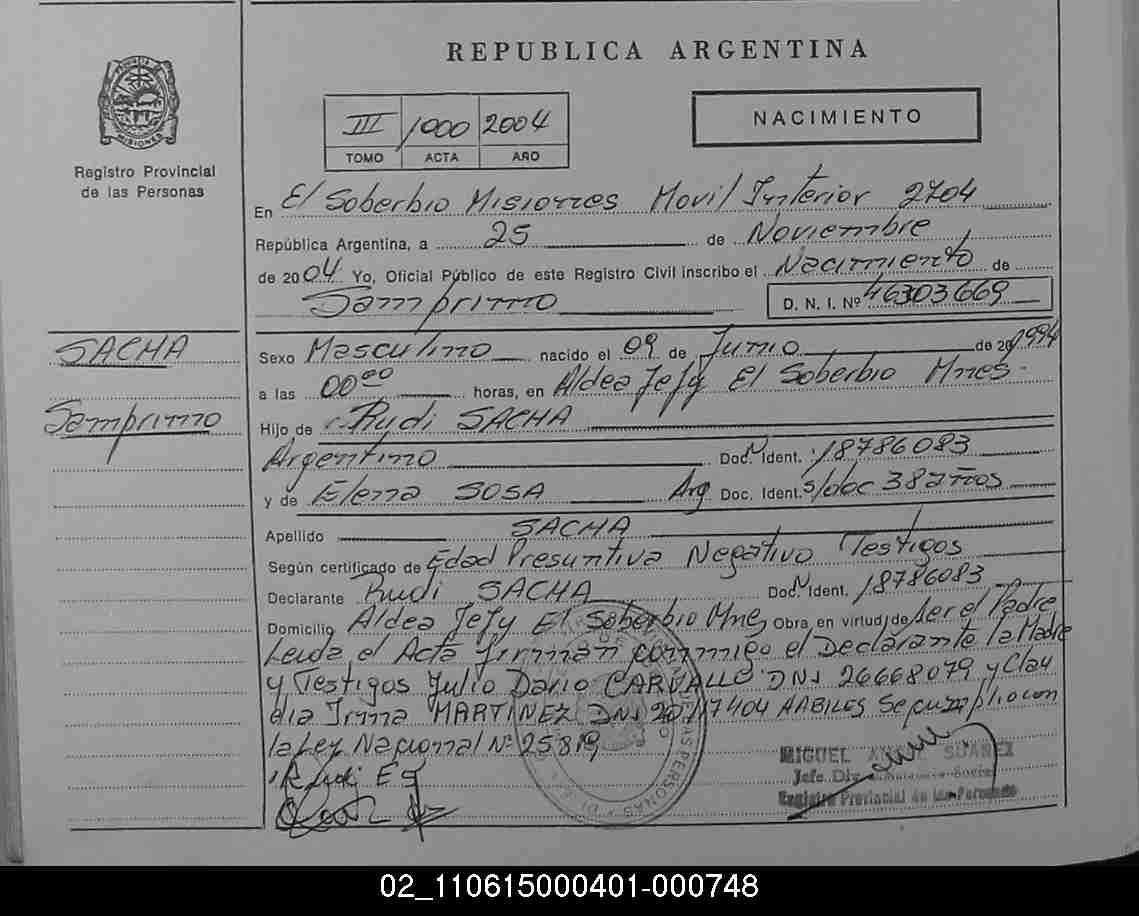 REPUBLICA ARGENTINA
MISIONES
Registro Provincial
de las Personas
III 1000 2004
TOMO ACTA AÑO
NACIMIENTO
En El Soberbio Misiones Movil Interior 2704
República Argentina, a 25 de Noviembre
de 2004 Yo, Oficial Público de este Registro Civil inscribo el Nacimiento de
Samprimo D. N. I. Nº 46303669
SACHA
Samprimo
Sexo Masculino nacido el 09 de Junio de 1994
a las 00 00 horas, en Aldea Jejy El Soberbio Mnes.
Hijo de Rudi SACHA
Argentino Doc. Ident. 18786083
y de Elena SOSA Arg Doc. Ident. s/doc 38 años
Apellido SACHA
Según certificado de Edad Presuntiva Negativo Testigos
Declarante Rudi SACHA Doc. Ident. 18786083
Domicilio Aldea Jejy El Soberbio Mnes Obra, en virtud de ser el Padre
Leida el Acta firman conmigo el Declarante la Madre
y Testigos Julio Dario CARVALLO DNI 26668079 y Clau
dia Irma MARTINEZ DNI AABILES Se cumplio con
la Ley Nacional Nº 25819
Rudi
MIGUEL SUAREZ
Jefe Div.
Registro Provincial de las Personas
02_110615000401-000748